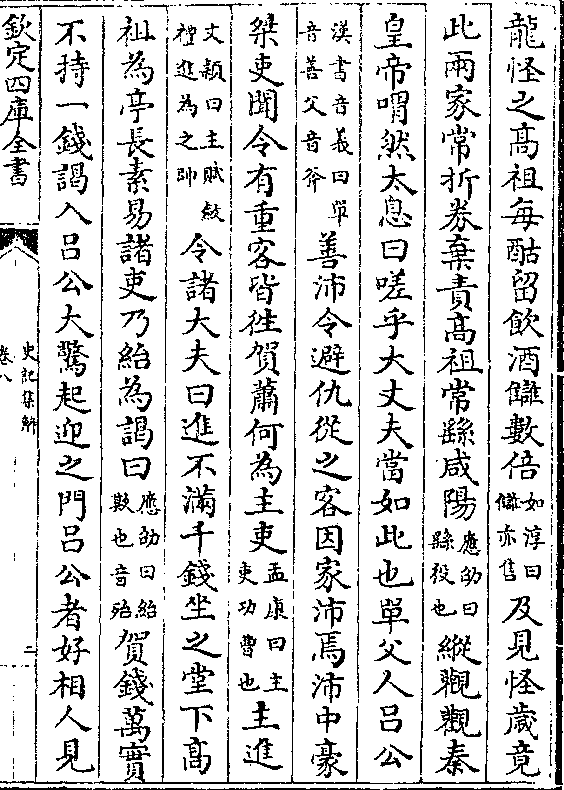 龍怪之髙祖每酤留飲酒讎數倍如淳曰讎亦售及見怪歳竟
此兩家常折劵棄責髙祖常繇咸陽應劭曰繇役也縱觀觀秦
皇帝喟然太息曰嗟乎大丈夫當如此也單父人吕公
漢書音義曰單音善父音斧善沛令避仇從之客因家沛焉沛中豪
桀吏聞令有重客皆往賀蕭何為主吏孟康曰主吏功曹也主進
文穎曰主賦斂禮進為之帥令諸大夫曰進不滿千錢坐之堂下髙
祖為亭長素易諸吏乃紿為謁曰應劭曰紿欺也音殆賀錢萬實
不持一錢謁入吕公大驚起迎之門吕公者好相人見
欽定四庫全書
史記集解
卷八
二